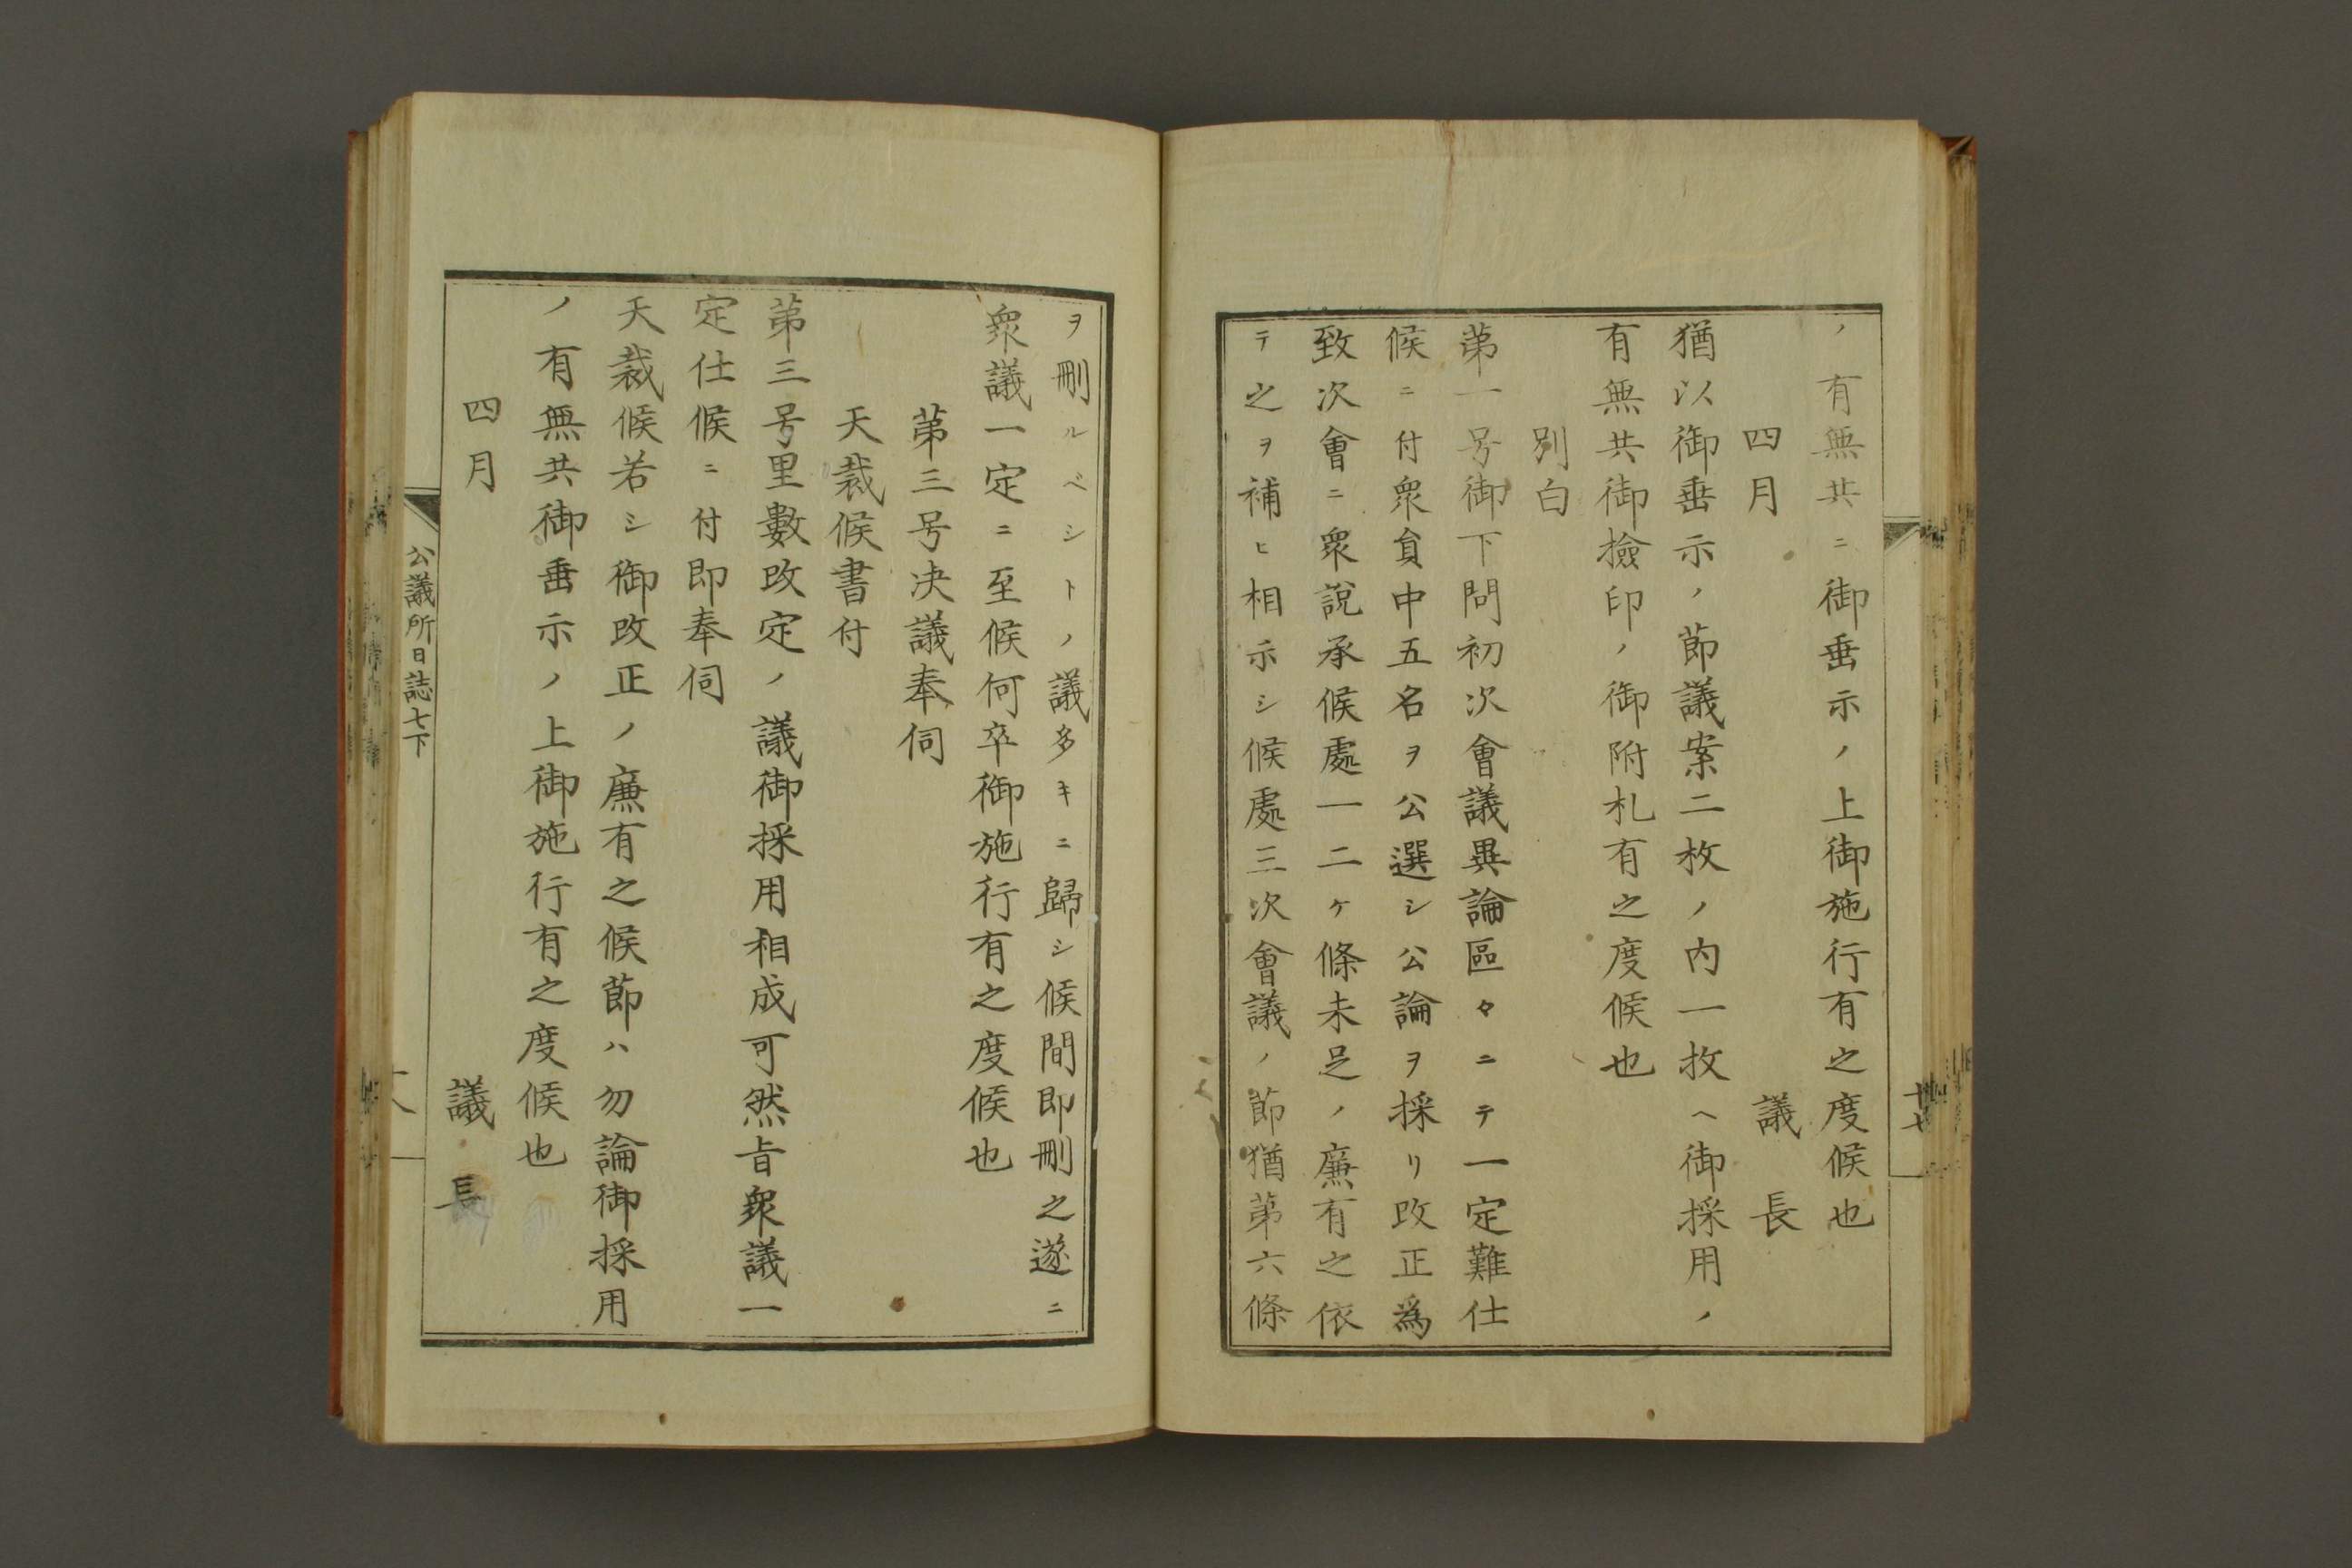 ノ有無共ニ御垂示ノ上御施行有之度候也
四月　議長
猶以御垂示ノ節議案二枚ノ内一枚ヘ御採用ノ
有無共御撿印ノ御附札有之度候也
別白
第一号御下問初次會議異論區々ニテ一定難仕
候ニ付衆員中五名ヲ公選シ公論ヲ採リ改正爲
致次會ニ衆說承候處一二ケ條未足ノ廉有之依
テ之ヲ補ヒ相示シ候處三次會議ノ節猶第六條
十七
ヲ刪ルベシトノ議多キニ歸シ候間即刪之遂ニ
衆議一定ニ至候何卒御施行有之度候也
第三号決議奉伺
天裁候書付
第三号里數改定ノ議御採用相成可然旨衆議一
定仕候ニ付即奉伺
天裁候若シ御改正ノ廉有之候節ハ勿論御採用
ノ有無共御垂示ノ上御施行有之度候也
四月　議長
公議所日誌七下